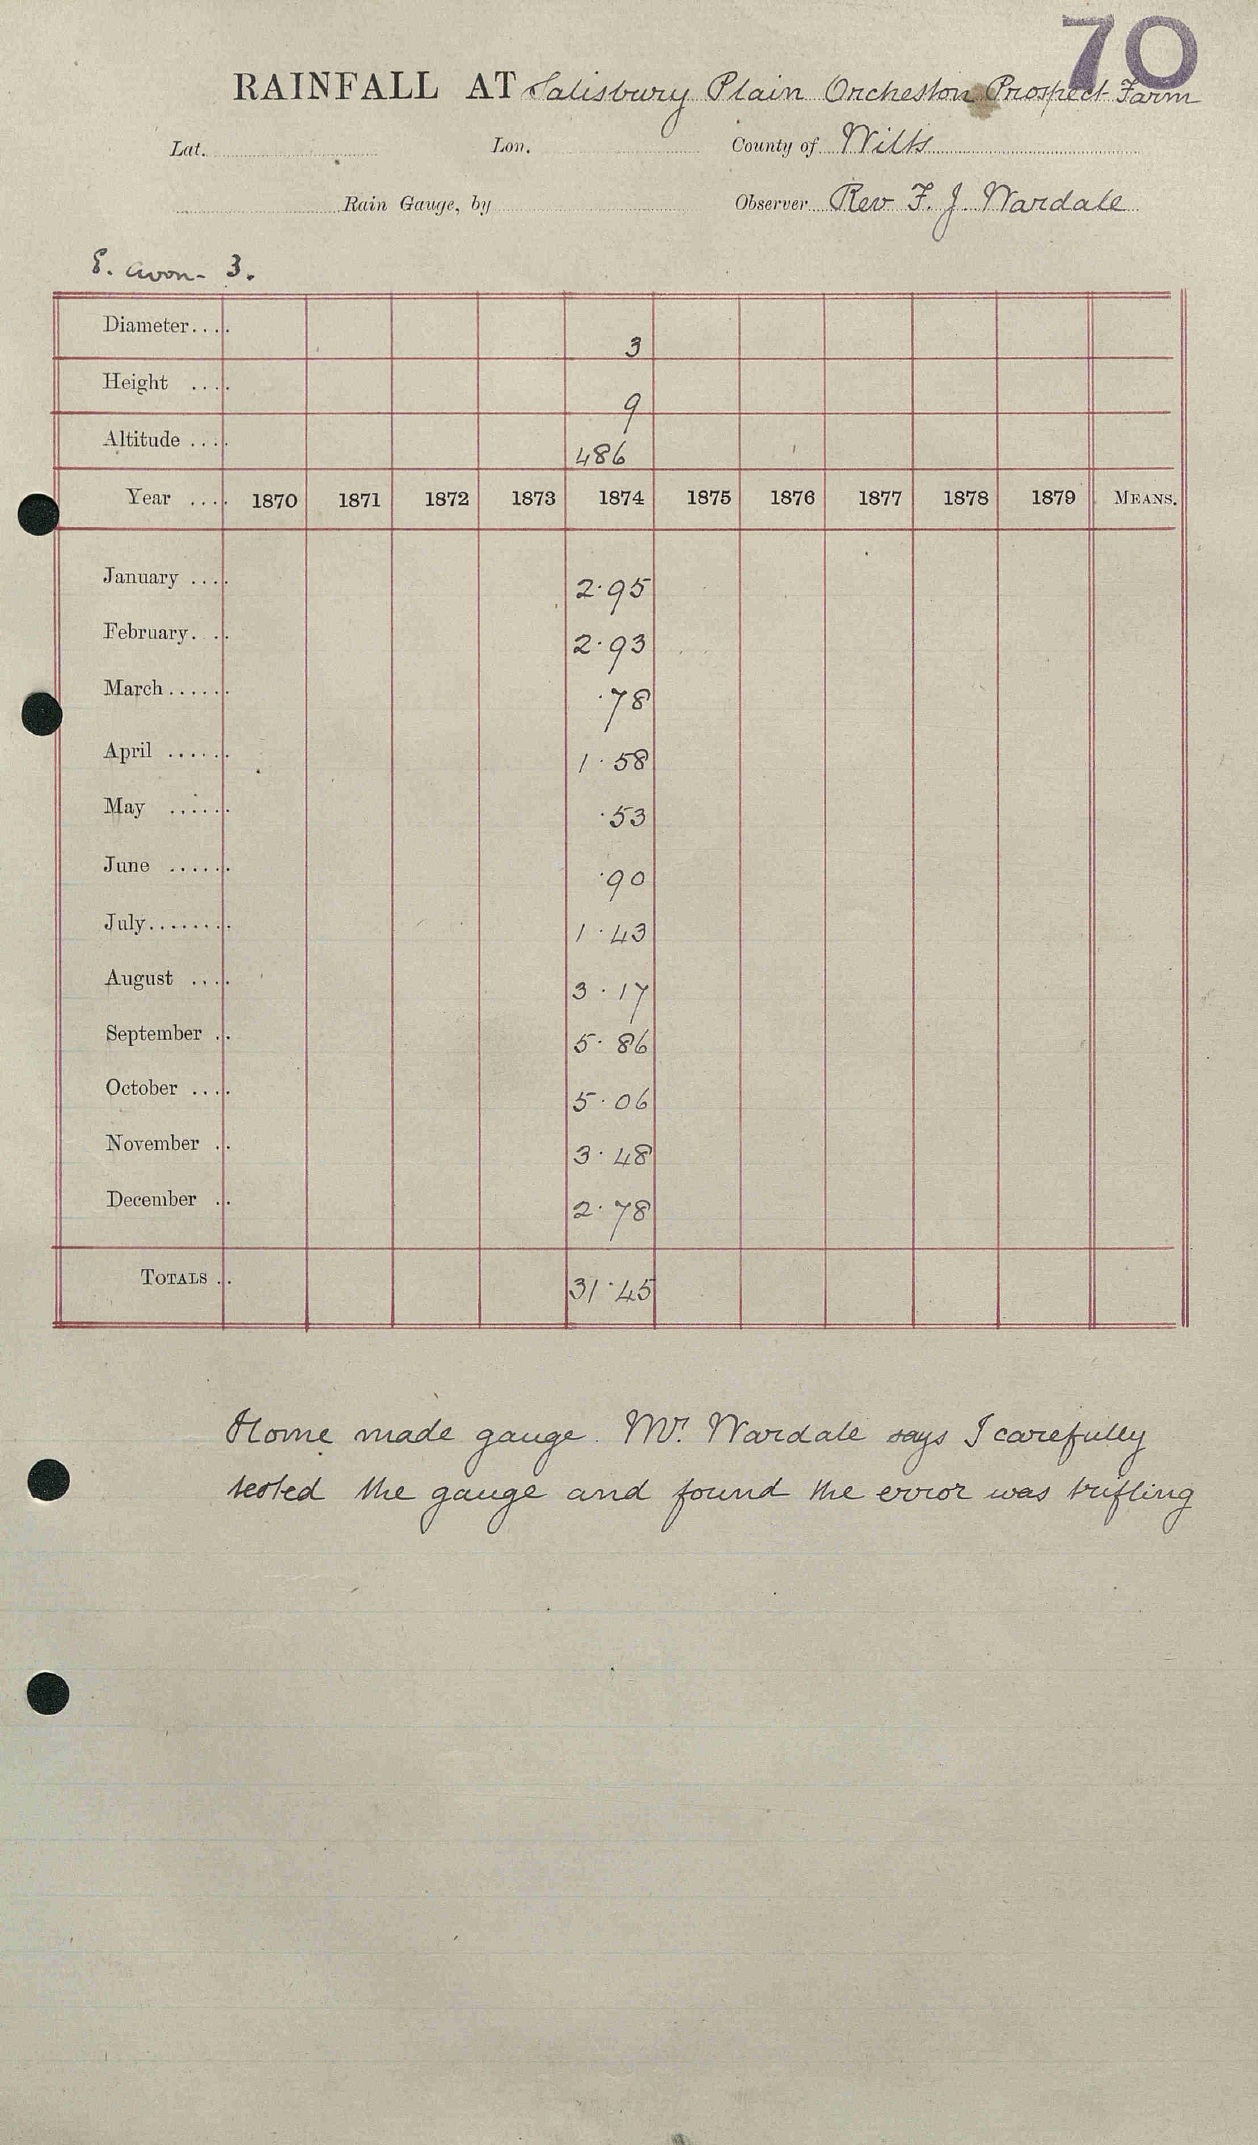 70
RAINFALL AT Salisbury Plain Orcheston Prospect Farm
Lat. Lon. County of Wilts
Rain Gauge, by Observer Rev F. J. Wardale
E. Avon - 3.
Diameter.... 3
Height .... 9
Altitude .... 486
Year .... 1870 1871 1872 1873 1874 1875 1876 1877 1878 1879 MEANS.
January .... 2.95
February. .. 2.93
March...... .78
April ...... 1.58
May ...... .53
June ...... .90
July........ 1.43
August .... 3.17
September .. 5.86
October .... 5.06
November .. 3.48
December .. 2.78
TOTALS .. 31.45
Home made gauge. Mr. Wardale says I carefully
tested the gauge and found the error was trifling